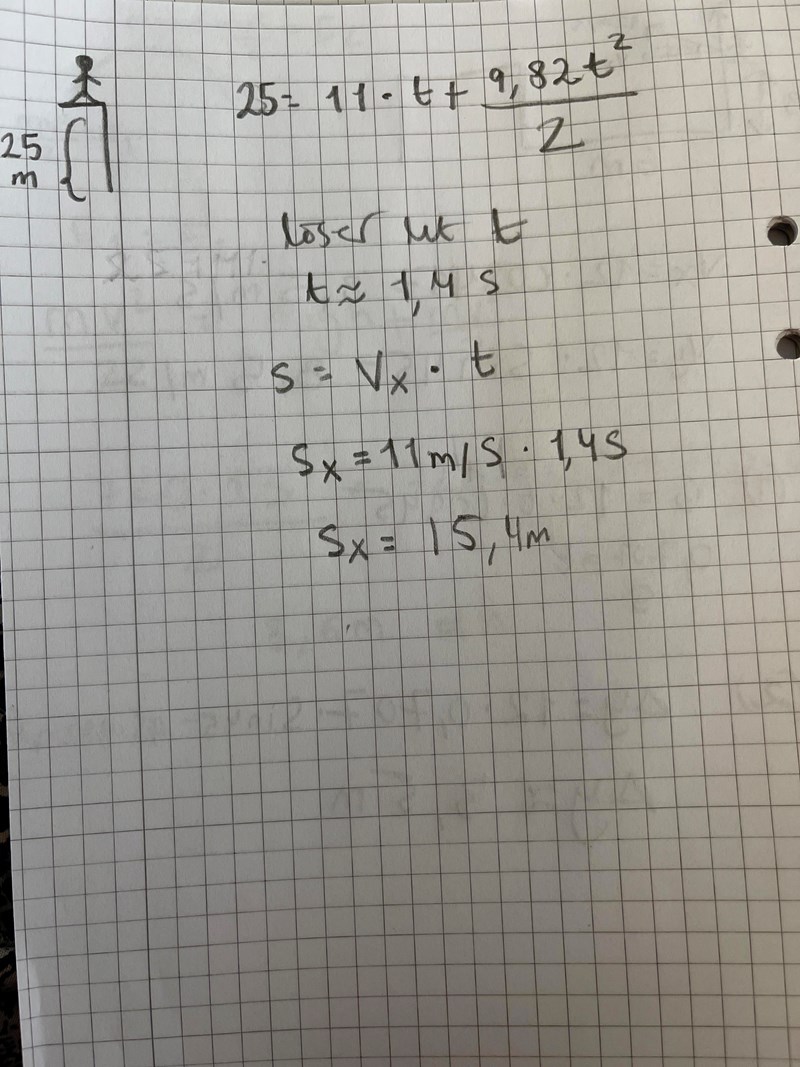 25 = 11 · t + 9,82t²/2
25
m
löser ut t
t ≈ 1,4 s
s = Vx · t
Sx = 11 m/s · 1,4s
Sx = 15,4m